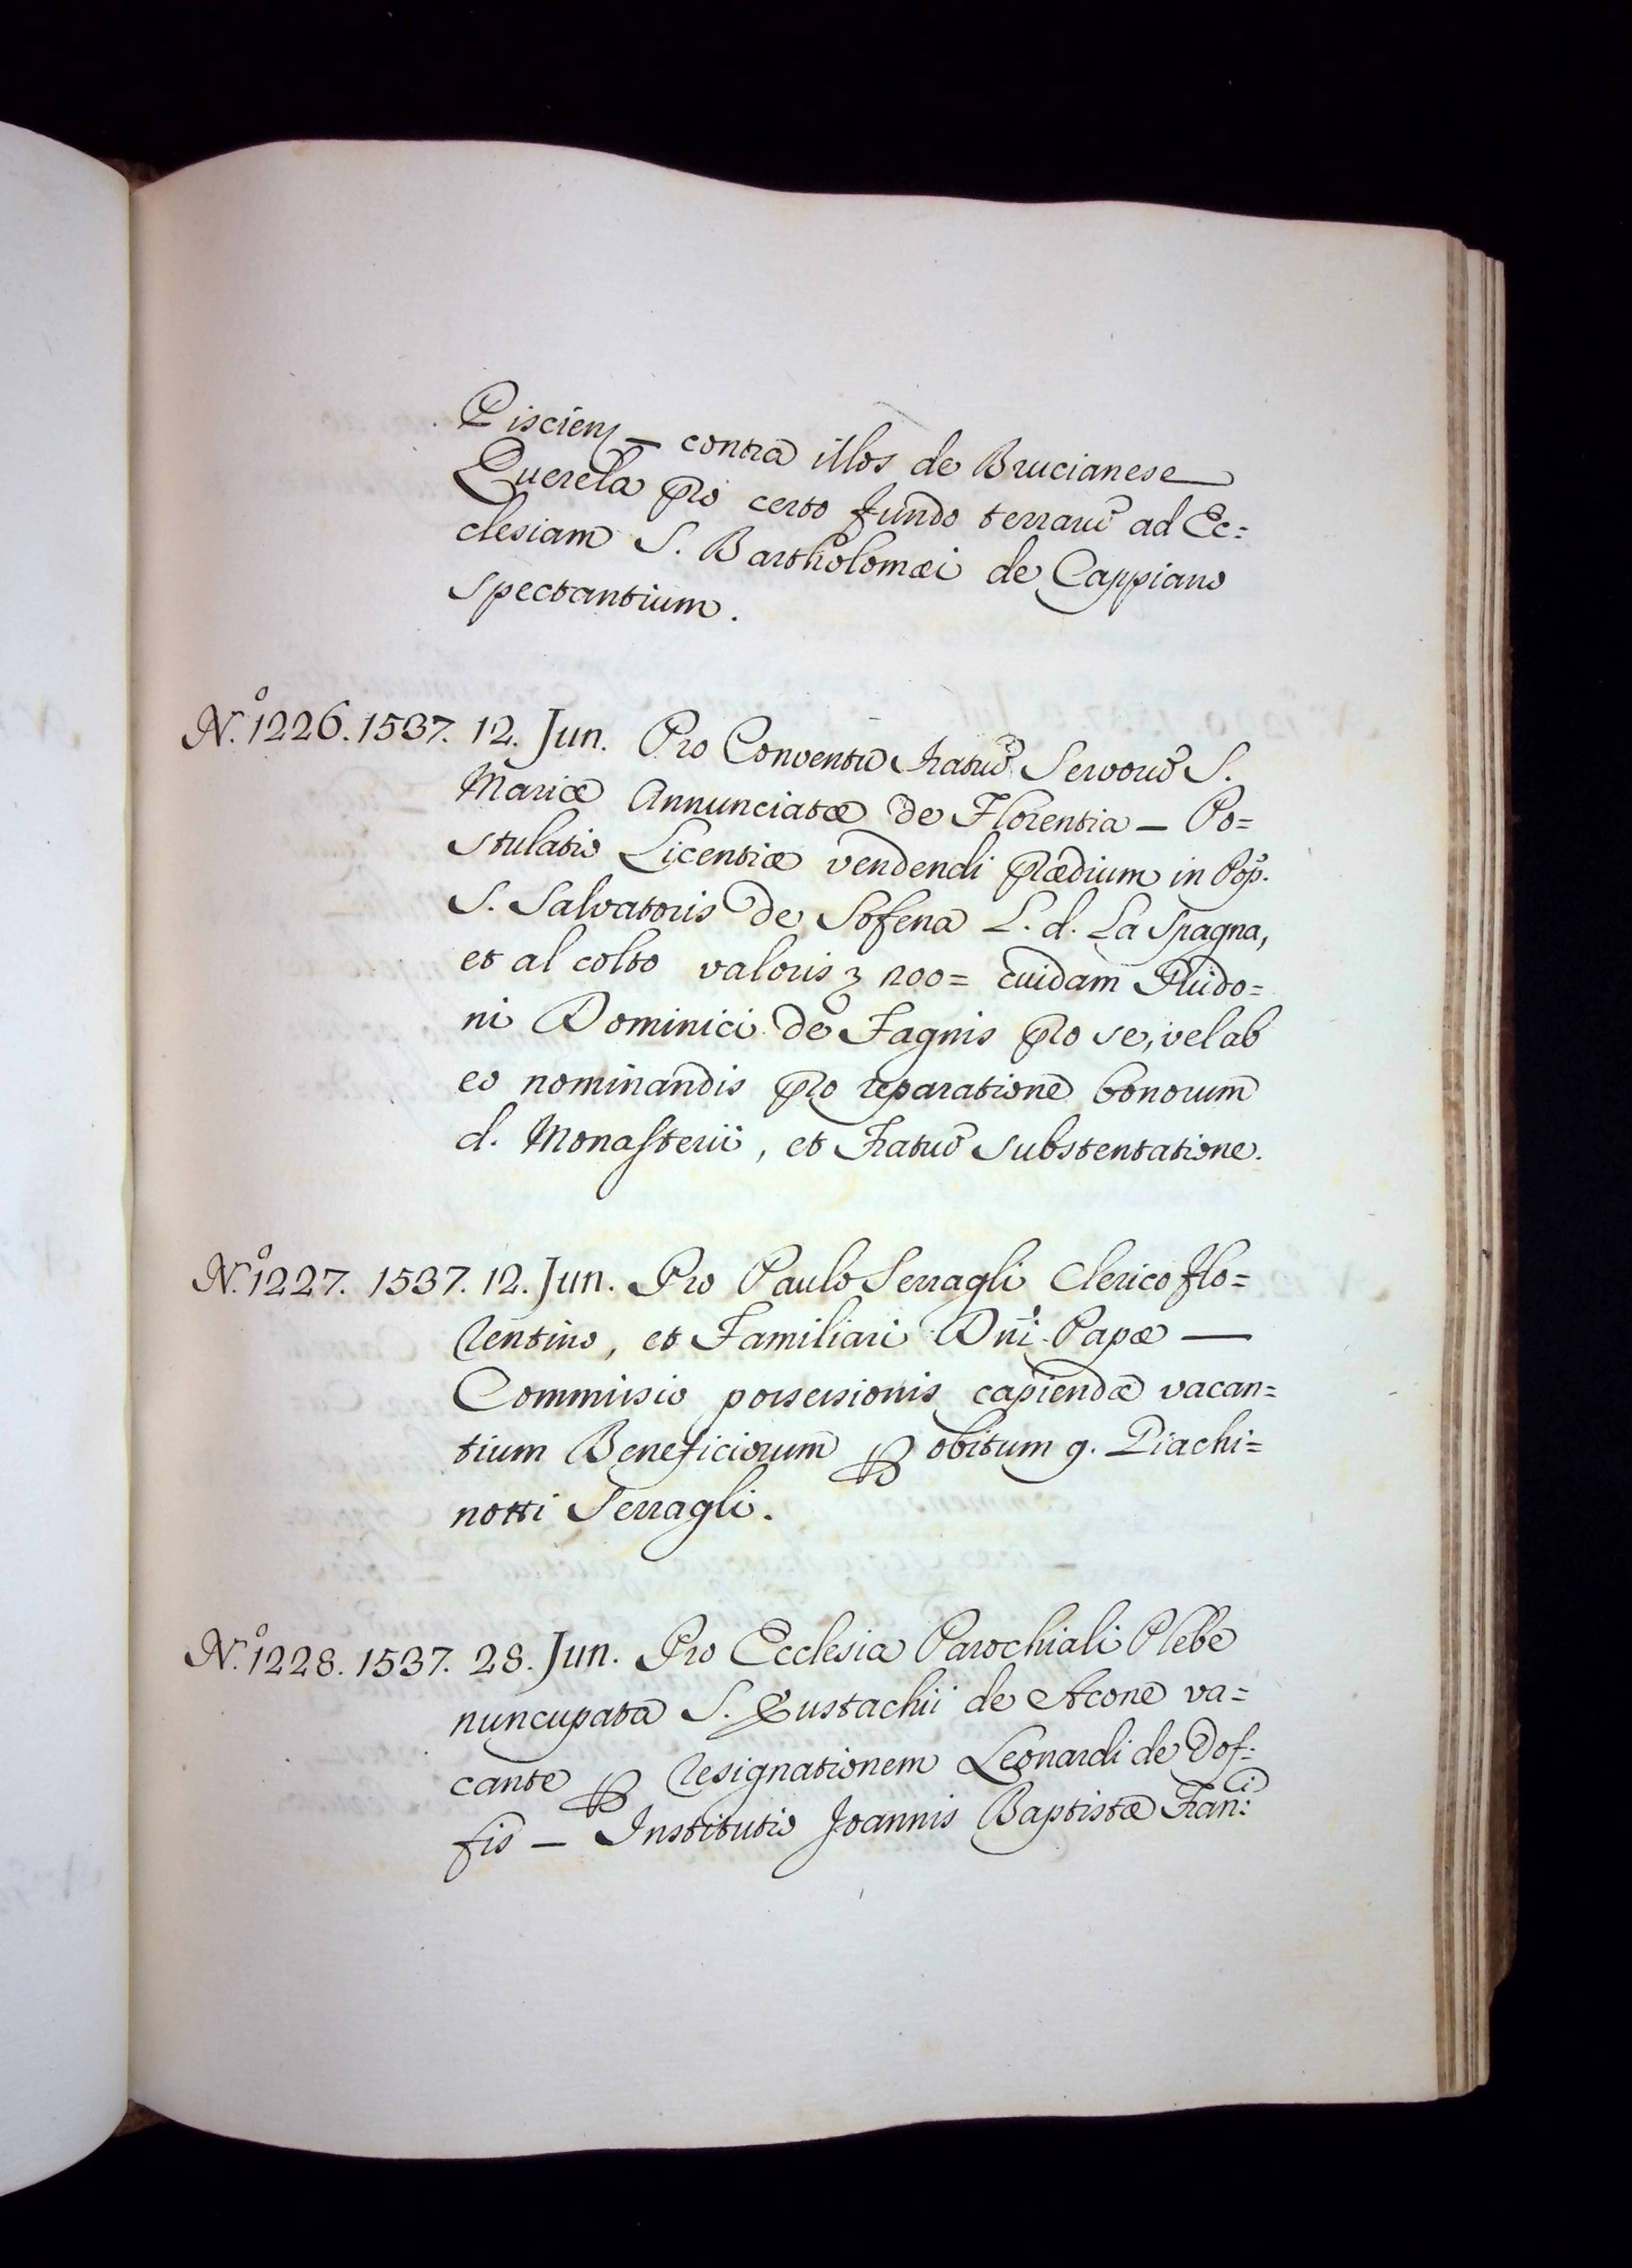 Piscieñ — contra illos de Brucianese
Querela pro certo fundo terraru᷃ ad Ec=
clesiam S. Bartholomæi de Cappiano
spectantium.
N.º 1226. 1537. 12. Jun. Pro Conventu Fratru᷃ Servoru᷃ S.
Mariæ Annunciatæ de Florentia — Po=
stulatio Licentiæ vendendi prædium in Pop.
S. Salvatoris de Sofena L. d. La Spagna,
et al colto valoris 200= cuidam Guido=
ni Dominici de Fagnis pro se, vel ab
eo nominandis pro reparatione bonorum
d. Monasterii, et Fratru᷃ substentatione.
N.º 1227. 1537. 12. Jun. Pro Paulo Serragli Clerico flo=
rentino, et Familiari Dñi Papæ —
Commissio possessionis capiendæ vacan=
tium Beneficiorum ꝑ obitum q. Piachi=
notti Serragli.
N.º 1228. 1537. 28. Jun. Pro Ecclesia Parochiali Plebe
nuncupata S. Eustachii de Acone va=
cante ꝑ resignationem Leonardi de Dof=
fis — Institutio Joannis Baptistæ Fran:ci